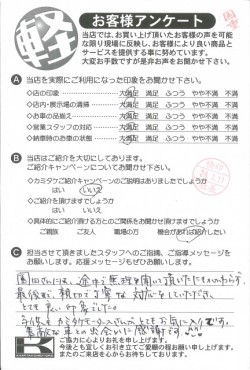 軽
お客様アンケート
当店では、お買い上げ頂いたお客様の声を可能
な限り現場に反映し、お客様により良い商品と
サービスを提供する事に努めています。
大変お手数ですが是非お声をお聞かせ下さい。
A 当店を実際にご利用になった印象をお聞かせ下さい。
◇店の印象 大満足 満足 ふつう やや不満 不満
◇店内・展示場の清掃 大満足 満足 ふつう やや不満 不満
◇お車の品揃え 大満足 満足 ふつう やや不満 不満
◇営業スタッフの対応 大満足 満足 ふつう やや不満 不満
◇納車時のお車の状態 大満足 満足 ふつう やや不満 不満
B 当店ではご紹介を大切にしております。
ご紹介キャンペーンについてお聞かせ下さい
◇カミタケご紹介キャンペーンのご説明はありましたでしょうか
はい いいえ
◇ご紹介を頂けますでしょうか
はい いいえ
◇具体的にご紹介頂ける方とのご関係をお聞かせ頂けますでしょうか
ご親族 ご友人 職場の方 機会があれば紹介したい
C 担当させて頂きましたスタッフへのご指摘、ご指導メッセージを
お願いします。応援メッセージもぜひお願いします。
園田さんには、途中、無理を聞いて頂いたにもかかわらず、
最後まで、親切、丁寧な対応をしていただき、
とても良い印象でした。
素敵な車との出会いに感謝です
ご協力に心よりお礼を申し上げます。
今後とも宜しくお引き立てご愛顧の程お願い申し上げます。
またのご来店を心からお待ちしております。